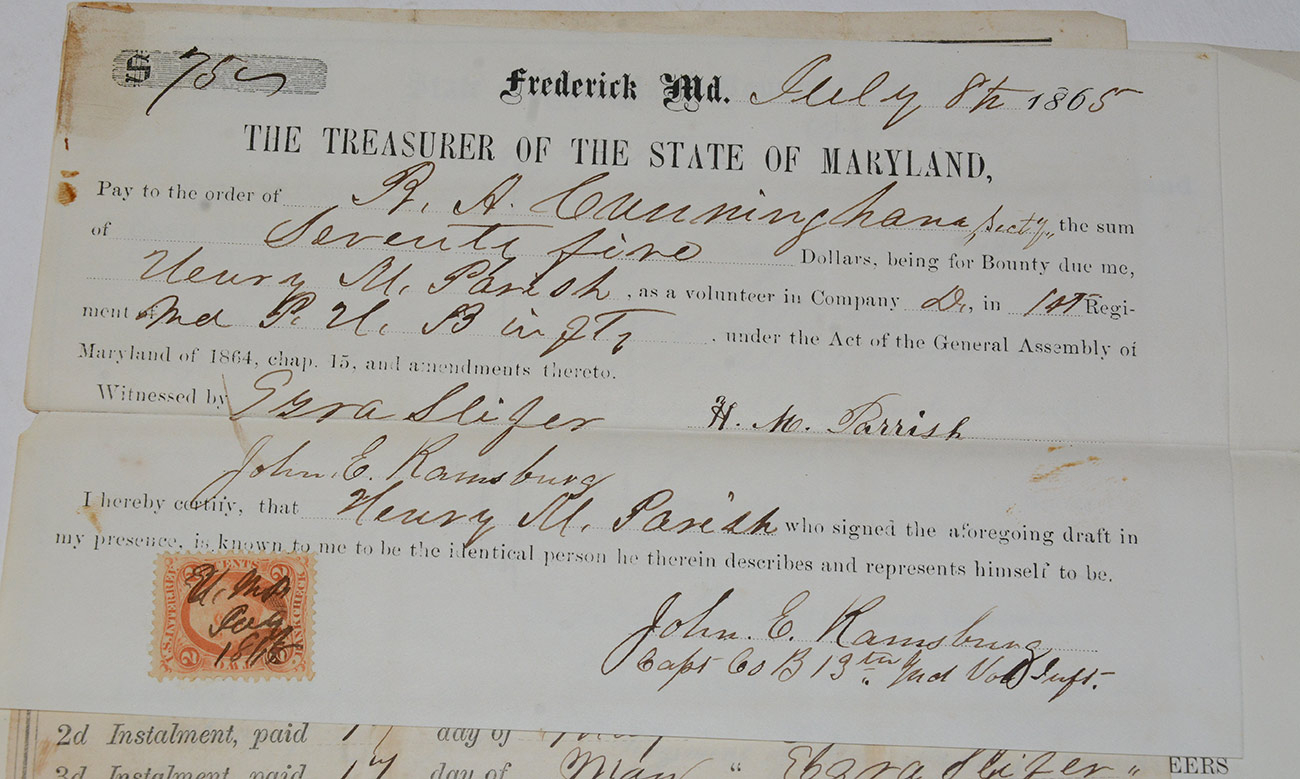 $ 75
Frederick Md. July 8th 1865
THE TREASURER OF THE STATE OF MARYLAND,
Pay to the order of R. A. Cunningham, Secty, the sum
of Seventy five Dollars, being for Bounty due me,
Henry M. Parish, as a volunteer in Company D, in 1st Regi-
ment of Md P. H. B infty, under the Act of the General Assembly of
Maryland of 1864, chap. 15, and amendments thereto.
Witnessed by Ezra Slifer H. M. Parrish
John E. Ramsburg
I hereby certify, that Henry M. Parish who signed the aforegoing draft in
my presence, is known to me to be the identical person he therein describes and represents himself to be.
U.S. INTER. REV. 2 CENTS BANK CHECK
H. M. P.
July
John E. Ramsburg
Capt Co B 13th Md Vol Inft.
2d Instalment, paid day of
3d Instalment, paid 17 day of May " Ezra Slifer "
EERS